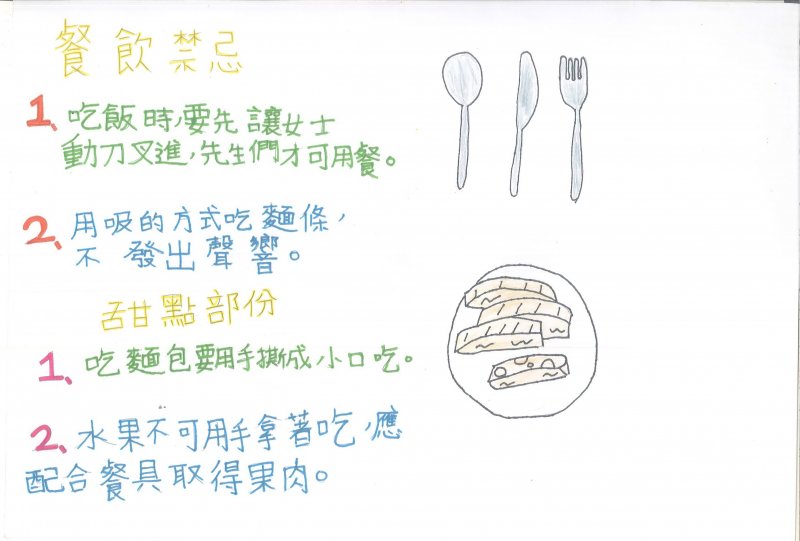 餐飲禁忌
1、吃飯時,要先讓女士
動刀叉進,先生們才可用餐。
2、用吸的方式吃麵條,
不發出聲響音。
甜點部份
1、吃麵包要用手撕成小口吃。
2、水果不可用手拿著吃,應
配合餐具取得果肉。